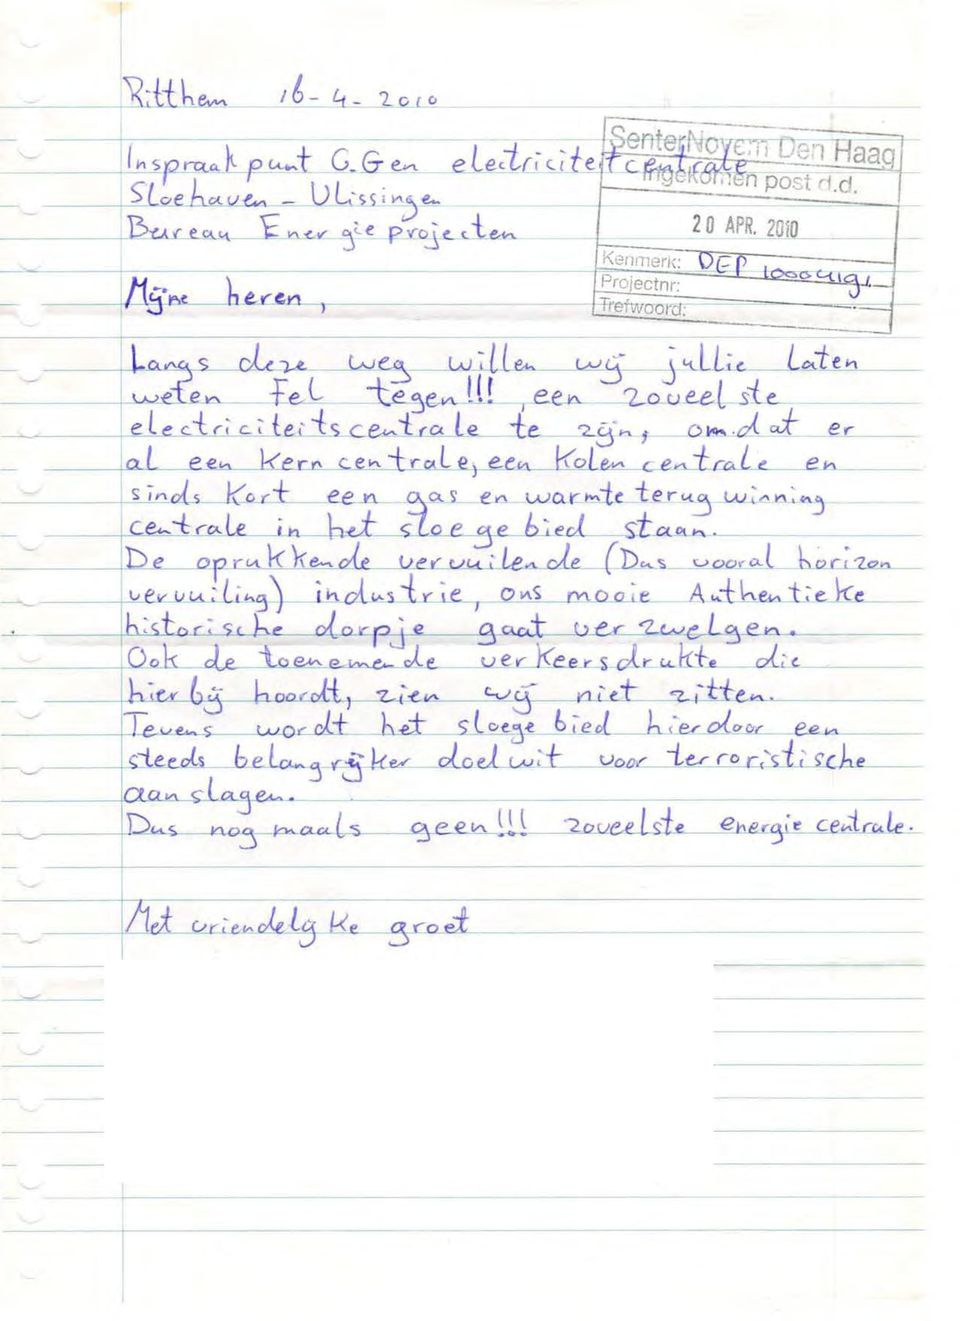 Ritthem 16-4-2010
SenterNovem Den Haag
Ingekomen post d.d.
20 APR. 2010
Kenmerk: DEP
Projectnr:
Trefwoord:
Inspraak punt C.Gen electriciteitcentrale
Sloehaven - Vlissingen
Bureau Energie projecten
Mijne heren,
Langs deze weg willen wij jullie Laten
weten Fel tegen!!!, een zoveelste
electriciteitscentrale te zijn, omdat er
al een Kerncentrale, een Kolencentrale en
sinds Kort een gas en warmte terug winning
centrale in het sloegebied staan.
De oprukkende vervuilende (Dus vooral horizon
vervuiling) industrie, ons mooie Authentieke
historische dorpje gaat verzwelgen.
Ook de toenemende verkeersdrukte die
hierbij hoordt, zien wij niet zitten.
Tevens wordt het sloegebied hierdoor een
steeds belangrijker doelwit voor terroristische
aanslagen.
Dus nogmaals geen!!! zoveelste energie centrale.
Met vriendelijke groet